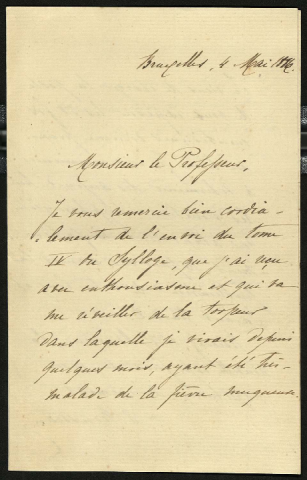 Bruxelles, 4 Mai 1886.
Monsieur le Professeur,
Je vous remercie bien cordia-
-lement de l'envoi du tome
IV du Sylloge, que j'ai reçu
avec enthousiasme et qui va
me réveiller de la torpeur
dans laquelle je vivais depuis
quelques mois, ayant été très
malade de la fièvre muqueuse.